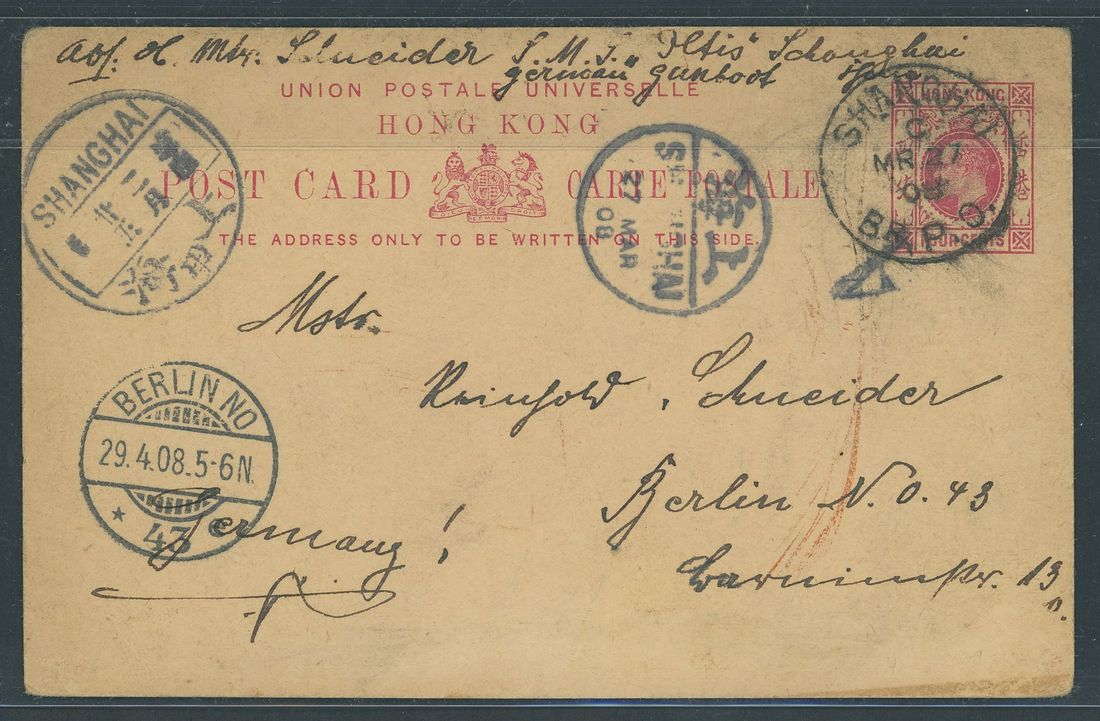 Abs. H. Mtr. Schneider S.M.S. "Iltis" Schanghai
german gunboot
UNION POSTALE UNIVERSELLE
HONG KONG
POST CARD CARTE POSTALE
DIEU ET MON DROIT
THE ADDRESS ONLY TO BE WRITTEN ON THIS SIDE.
HONG KONG
FOUR CENTS
SHANGHAI
C
MR 27
08
B.R.P.O.
SHANGHAI
月
27 MAR 08
工
Mstr.
Reinhold Schneider
Berlin N.O. 43
Barnimstr. 13
Germany!
BERLIN NO
29.4.08.5-6N.
* 43